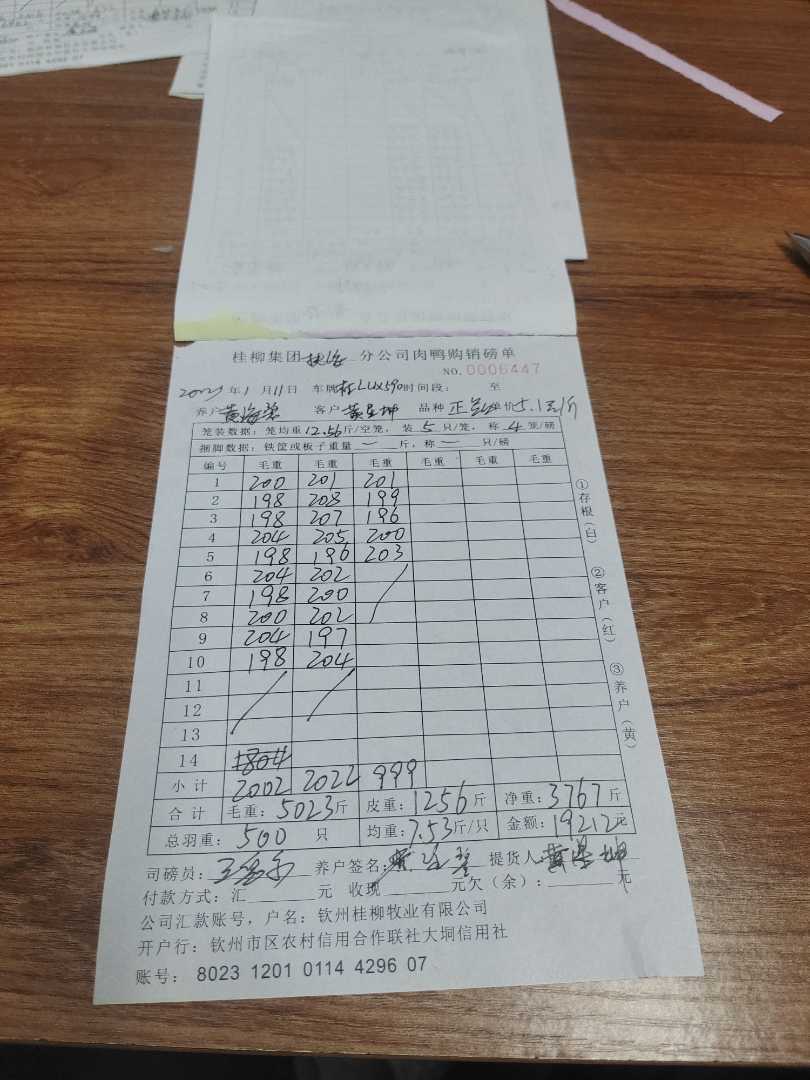 桂柳集团 分公司肉鸭购销磅单
NO.0006447
2023年1月11日 车牌桂LUX590时间段： 至
养户黄海 客户黄 坤 品种 单价5.1元/斤
笼装数据：笼均重12.56斤/空笼，装5只/笼，称4笼/磅
捆脚数据：铁筐或板子重量—斤，称—只/磅
编号 毛重 毛重 毛重 毛重 毛重 毛重
1 200 201 201
2 198 208 199
3 198 207 196
4 204 205 200
5 198 196 203
6 204 202
7 198 200
8 200 202
9 204 197
10 198 204
11
12
13
14
小计 2002 2022 999
合计 毛重：5023斤 皮重：1256斤 净重：3767斤
总羽重：500只 均重：7.53斤/只 金额：19212元
司磅员： 养户签名： 提货人
付款方式：汇 元 收现 元欠（余）： 元
公司汇款账号，户名：钦州桂柳牧业有限公司
开户行：钦州市区农村信用合作联社大垌信用社
账号：8023 1201 0114 4296 07
①存根（白）
②客户（红）
③养户（黄）